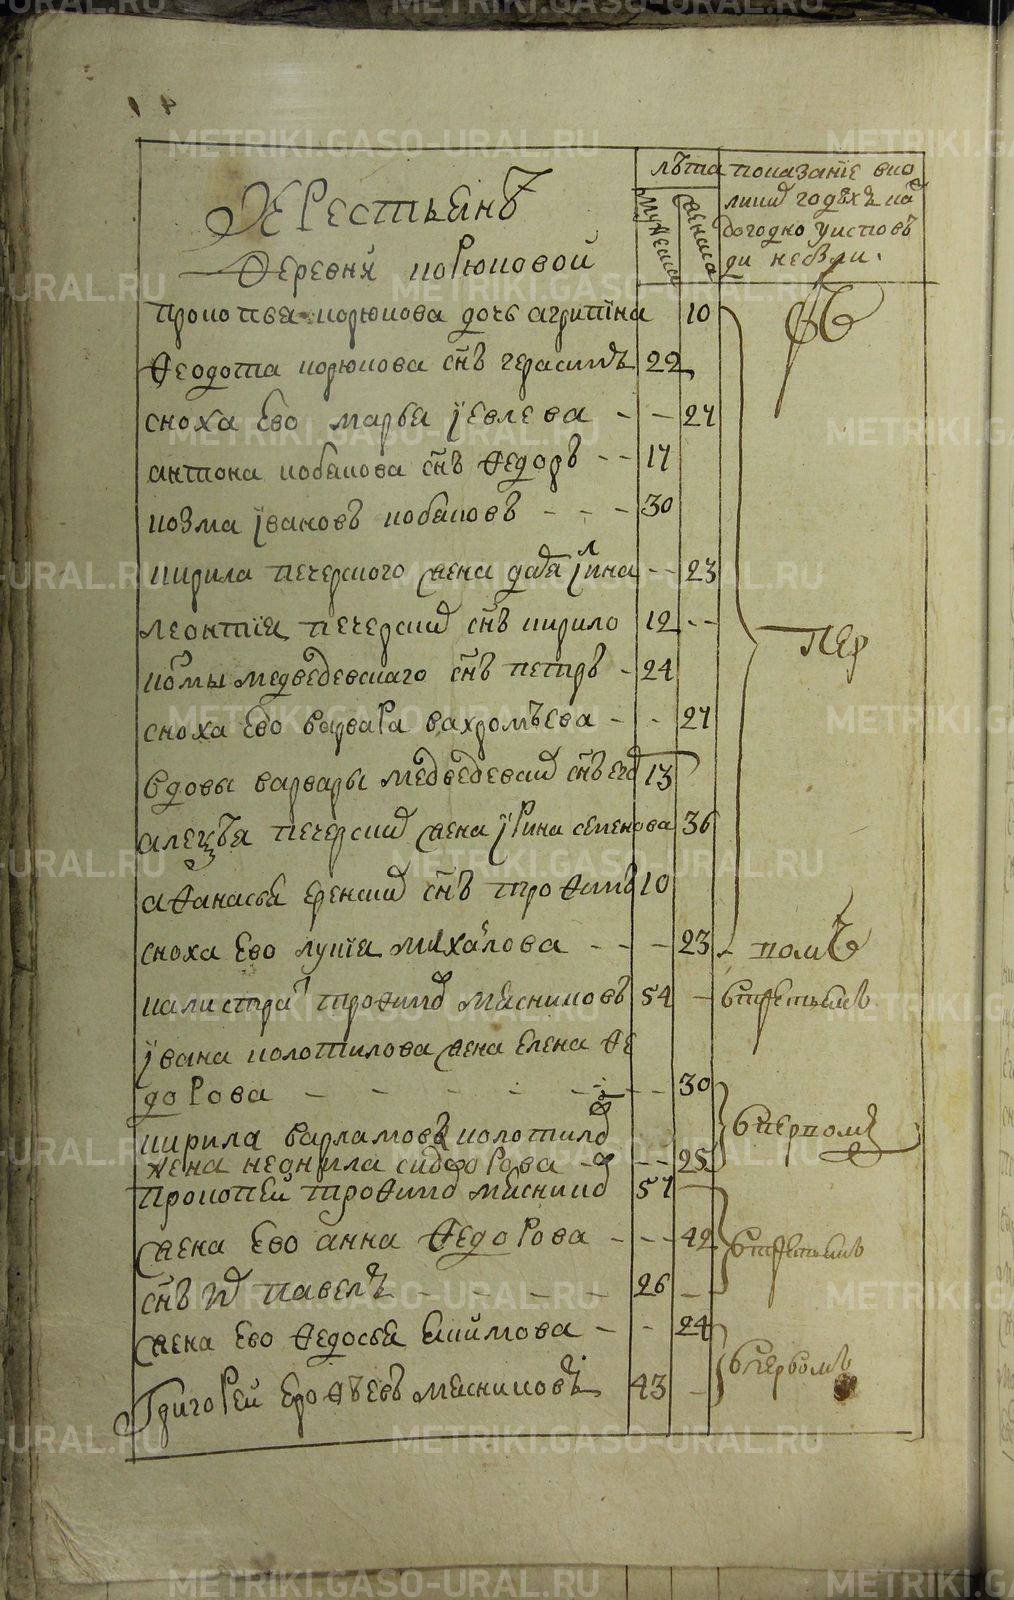 Крестьянъ
деревня корюковой
лѣта
мужеска
женска
показание вко
лики годѣхъ на
догодно уисповѣ
ди небыли.
прокопья корюкова дочь агрипїна 10
Ѳеодота корюкова сн҃ъ герасимъ 22
сноха ево марья іевлева - - 27
антона кобякова сн҃ъ Ѳедоръ - - 17
козма івановъ кобяковъ - - - 30
кирила печерского жена дарья 23
леонтїя печерских сн҃ъ кирило 12 - -
козмы медведевскаго сн҃ъ петръ - 24
сноха ево варвара вахромѣева - - 27
вдовы варвары медведевских сн҃ъ его 13
алеѯѣя печерских жена ірина семенова 36
аѲанасья еренских сн҃ъ троѲимъ 10
сноха ево лукїя михаилова - - - 23
въ
пер
вомъ
калистратъ троѲимов мясниковъ 54 - втретьемъ
івана колотилова жена елена Ѳе
дорова - - - - - - - 30
кирила варламовъ колотилов
вперьвомъ
жена неонила сидорова - - - 25
прокопей троѲимов мясников 57
жена ево анна Ѳедорова - - - 42 втретьемъ
сн҃ъ их павелъ - - - - 26 -
жена ево Ѳедосья екимова - - 24
вперьвомъ
григорей ероѲѣевъ мясниковъ 43 -
METRIKI.GASO-URAL.RU